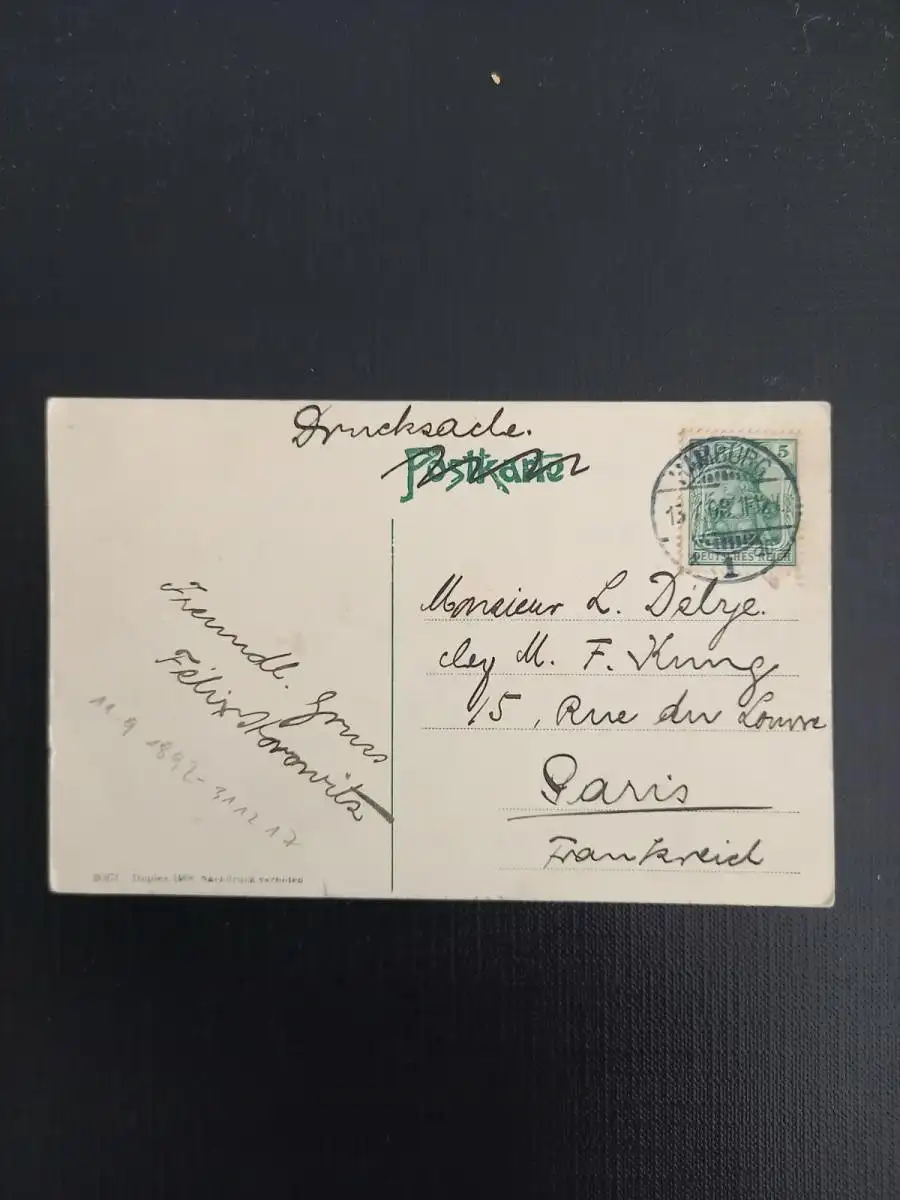 Drucksache.
Postkarte
HAMBURG
1
5
DEUTSCHES REICH
Monsieur L.
M. F. Kung
15, Rue du Louvre
Paris
Frankreich
Freundl. Gruss
Félix Horowitz
11.9 1892 - 31 12 17
Nachdruck verboten